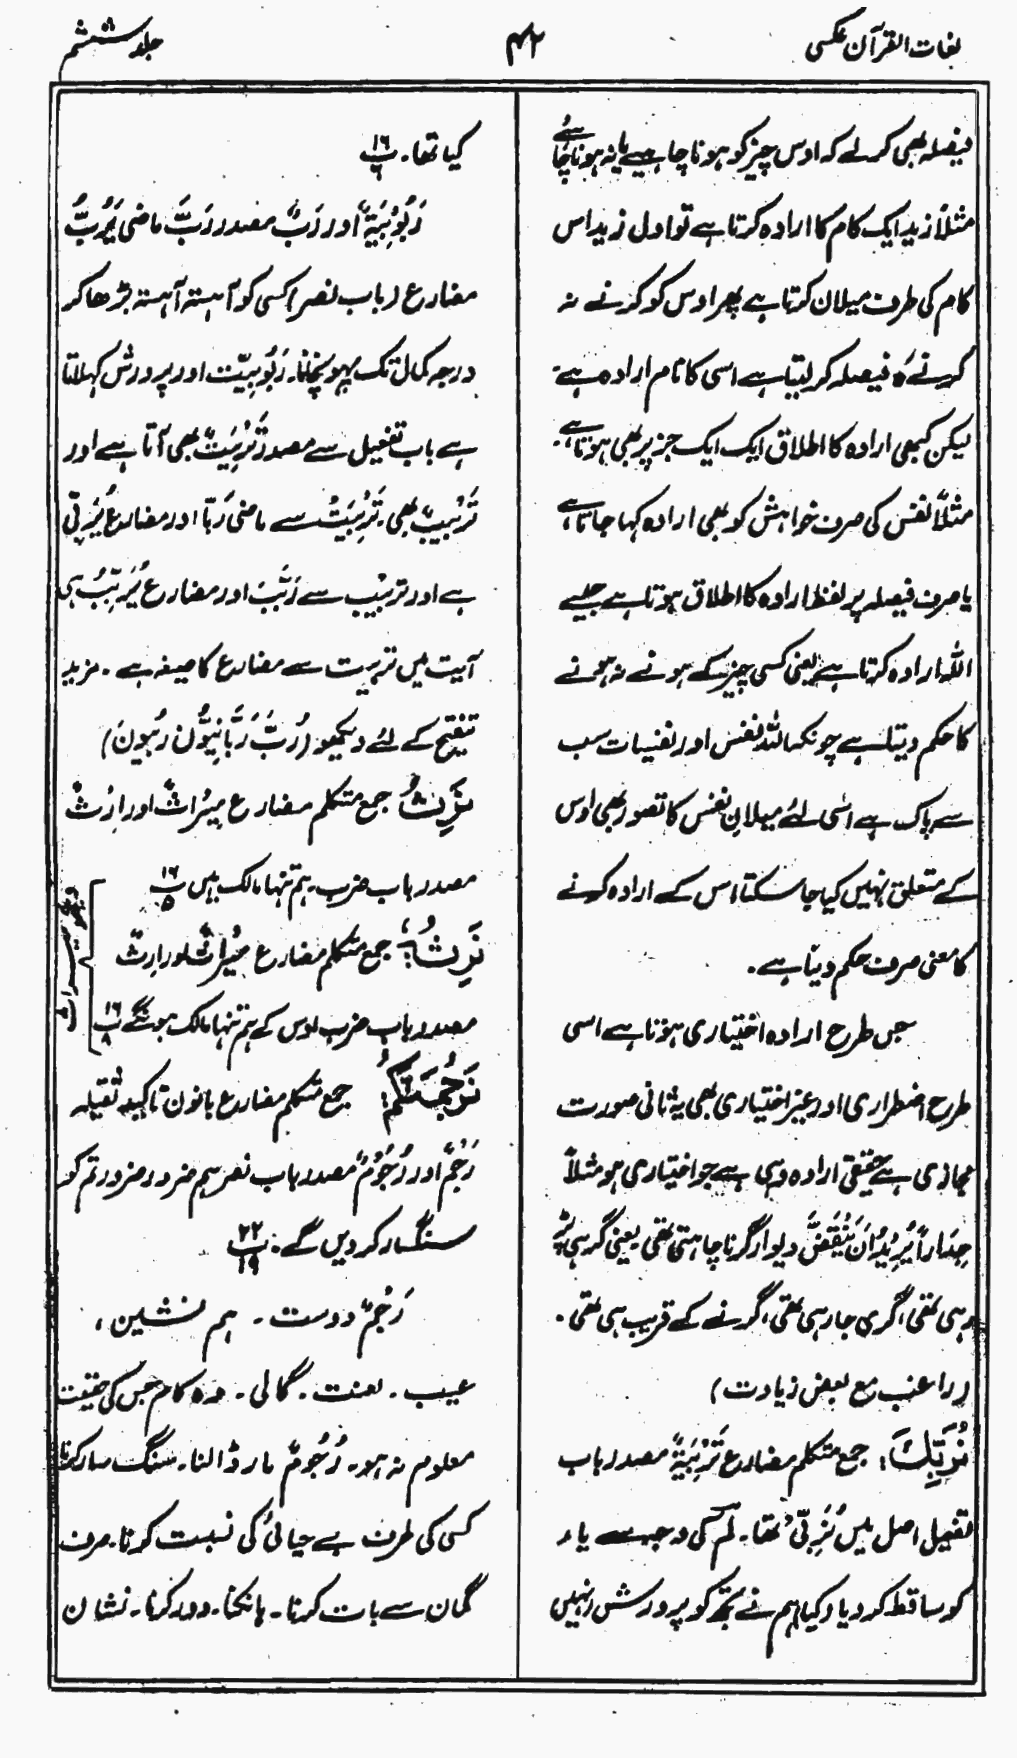 لغات القرآن عکسی
۴۲
جلد ششم
فیصلہ بھی کرلے کہ اوس چیز کو ہونا چاہیے یا نہ ہونا چاہئے
مثلاً زید ایک کام کا ارادہ کرتا ہے تو اول زید اس
کام کی طرف میلان کرتا ہے پھر اوس کو کرنے نہ
کرنے کا فیصلہ کرلیتا ہے اسی کا نام ارادہ ہے۔
لیکن کبھی ارادہ کا اطلاق ایک ایک جز پر بھی ہوتا ہے۔
مثلاً نفس کی صرف خواہش کو بھی ارادہ کہا جاتا ہے،
یا صرف فیصلہ پر لفظ ارادہ کا اطلاق ہوتا ہے جیسے
اللہ ارادہ کرتا ہے یعنی کسی چیز کے ہونے نہ ہونے
کا حکم دیتا ہے چونکہ اللہ نفس اور نفسیات سب
سے پاک ہے اسی لئے میلانِ نفس کا تصور بھی اوس
کے متعلق نہیں کیا جا سکتا اس کے ارادہ کرنے
کا معنی صرف حکم دینا ہے۔
جس طرح ارادہ اختیاری ہوتا ہے اسی
طرح اضطراری اور غیر اختیاری بھی یہ ثانی صورت
مجازی ہے حقیقی ارادہ وہی ہے جو اختیاری ہو مثلاً
جِدَاراً یُرِیْدُ اَنْ یَّنْقَضَّ دیوار گرنا چاہتی تھی یعنی گر ہی پڑ
رہی تھی، گری جا رہی تھی، گرنے کے قریب ہی تھی۔
(راغب مع بعض زیادت)
نُرَبِّكَ: جمع متکلم مضارع تَرْبِیَۃٌ مصدر باب
تفعیل اصل میں نُرَبِّیْ تھا۔ لم کی وجہ سے یاء
کو ساقط کردیا، کیا ہم نے تجھ کو پرورش نہیں
کیا تھا۔ پ ۱۹ ۶
رَبُوْبِیَۃٌ اور رَبٌّ مصدر رَبَّ ماضی یَرُبُّ
مضارع (باب نصر) کسی کو آہستہ آہستہ بڑھا کر
درجہ کمال تک پہونچانا۔ رَبُوْبِیّت اور پرورش کہلاتا
ہے باب تفعیل سے مصدر تَرْبِیَتٌ بھی آتا ہے اور
تَرْبِیْبٌ بھی۔ تَرْبِیَتٌ سے ماضی رَبّٰا اور مضارع یُرَبِّیْ
ہے اور تربیب سے رَبَّبَ اور مضارع یُرَبِّبُ ہی
آیت میں تربیت سے مضارع کا صیغہ ہے۔ مزید
تنقیح کے لئے دیکھو (رُبَّ رَبَّانِیُّوْن رِبِّیُوْنَ)
نَرِثُ جمع متکلم مضارع مِیْرَاثٌ اور اِرْثٌ
مصدر باب ضرب۔ ہم تنہا مالک ہیں پ ۱۶ ۵
نَرِثُ: جمع متکلم مضارع مِیْرَاثٌ اور ارثٌ
مصدر باب ضرب اوس کے ہم تنہا مالک ہونگے پ ۱۶ ۸
نَرْجُمَنَّکُمْ: جمع متکلم مضارع بانون تاکید ثقیلہ
رَجْمٌ اور رُجُوْمٌ مصدر باب نصر ہم ضرور ضرور تم کو
سنگسار کردیں گے۔ پ ۲۲ ۱۹
رَجْمٌ دوست۔ ہم نشین،
عیب۔ لعنت۔ گالی۔ وہ کام جس کی حقیقت
معلوم نہ ہو۔ رُجُومٌ مار ڈالنا۔ سنگ سار کرنا
کسی کی طرف بے حیائی کی نسبت کرنا۔ صرف
گمان سے بات کرنا۔ ہانکنا۔ دور کرنا۔ نشان